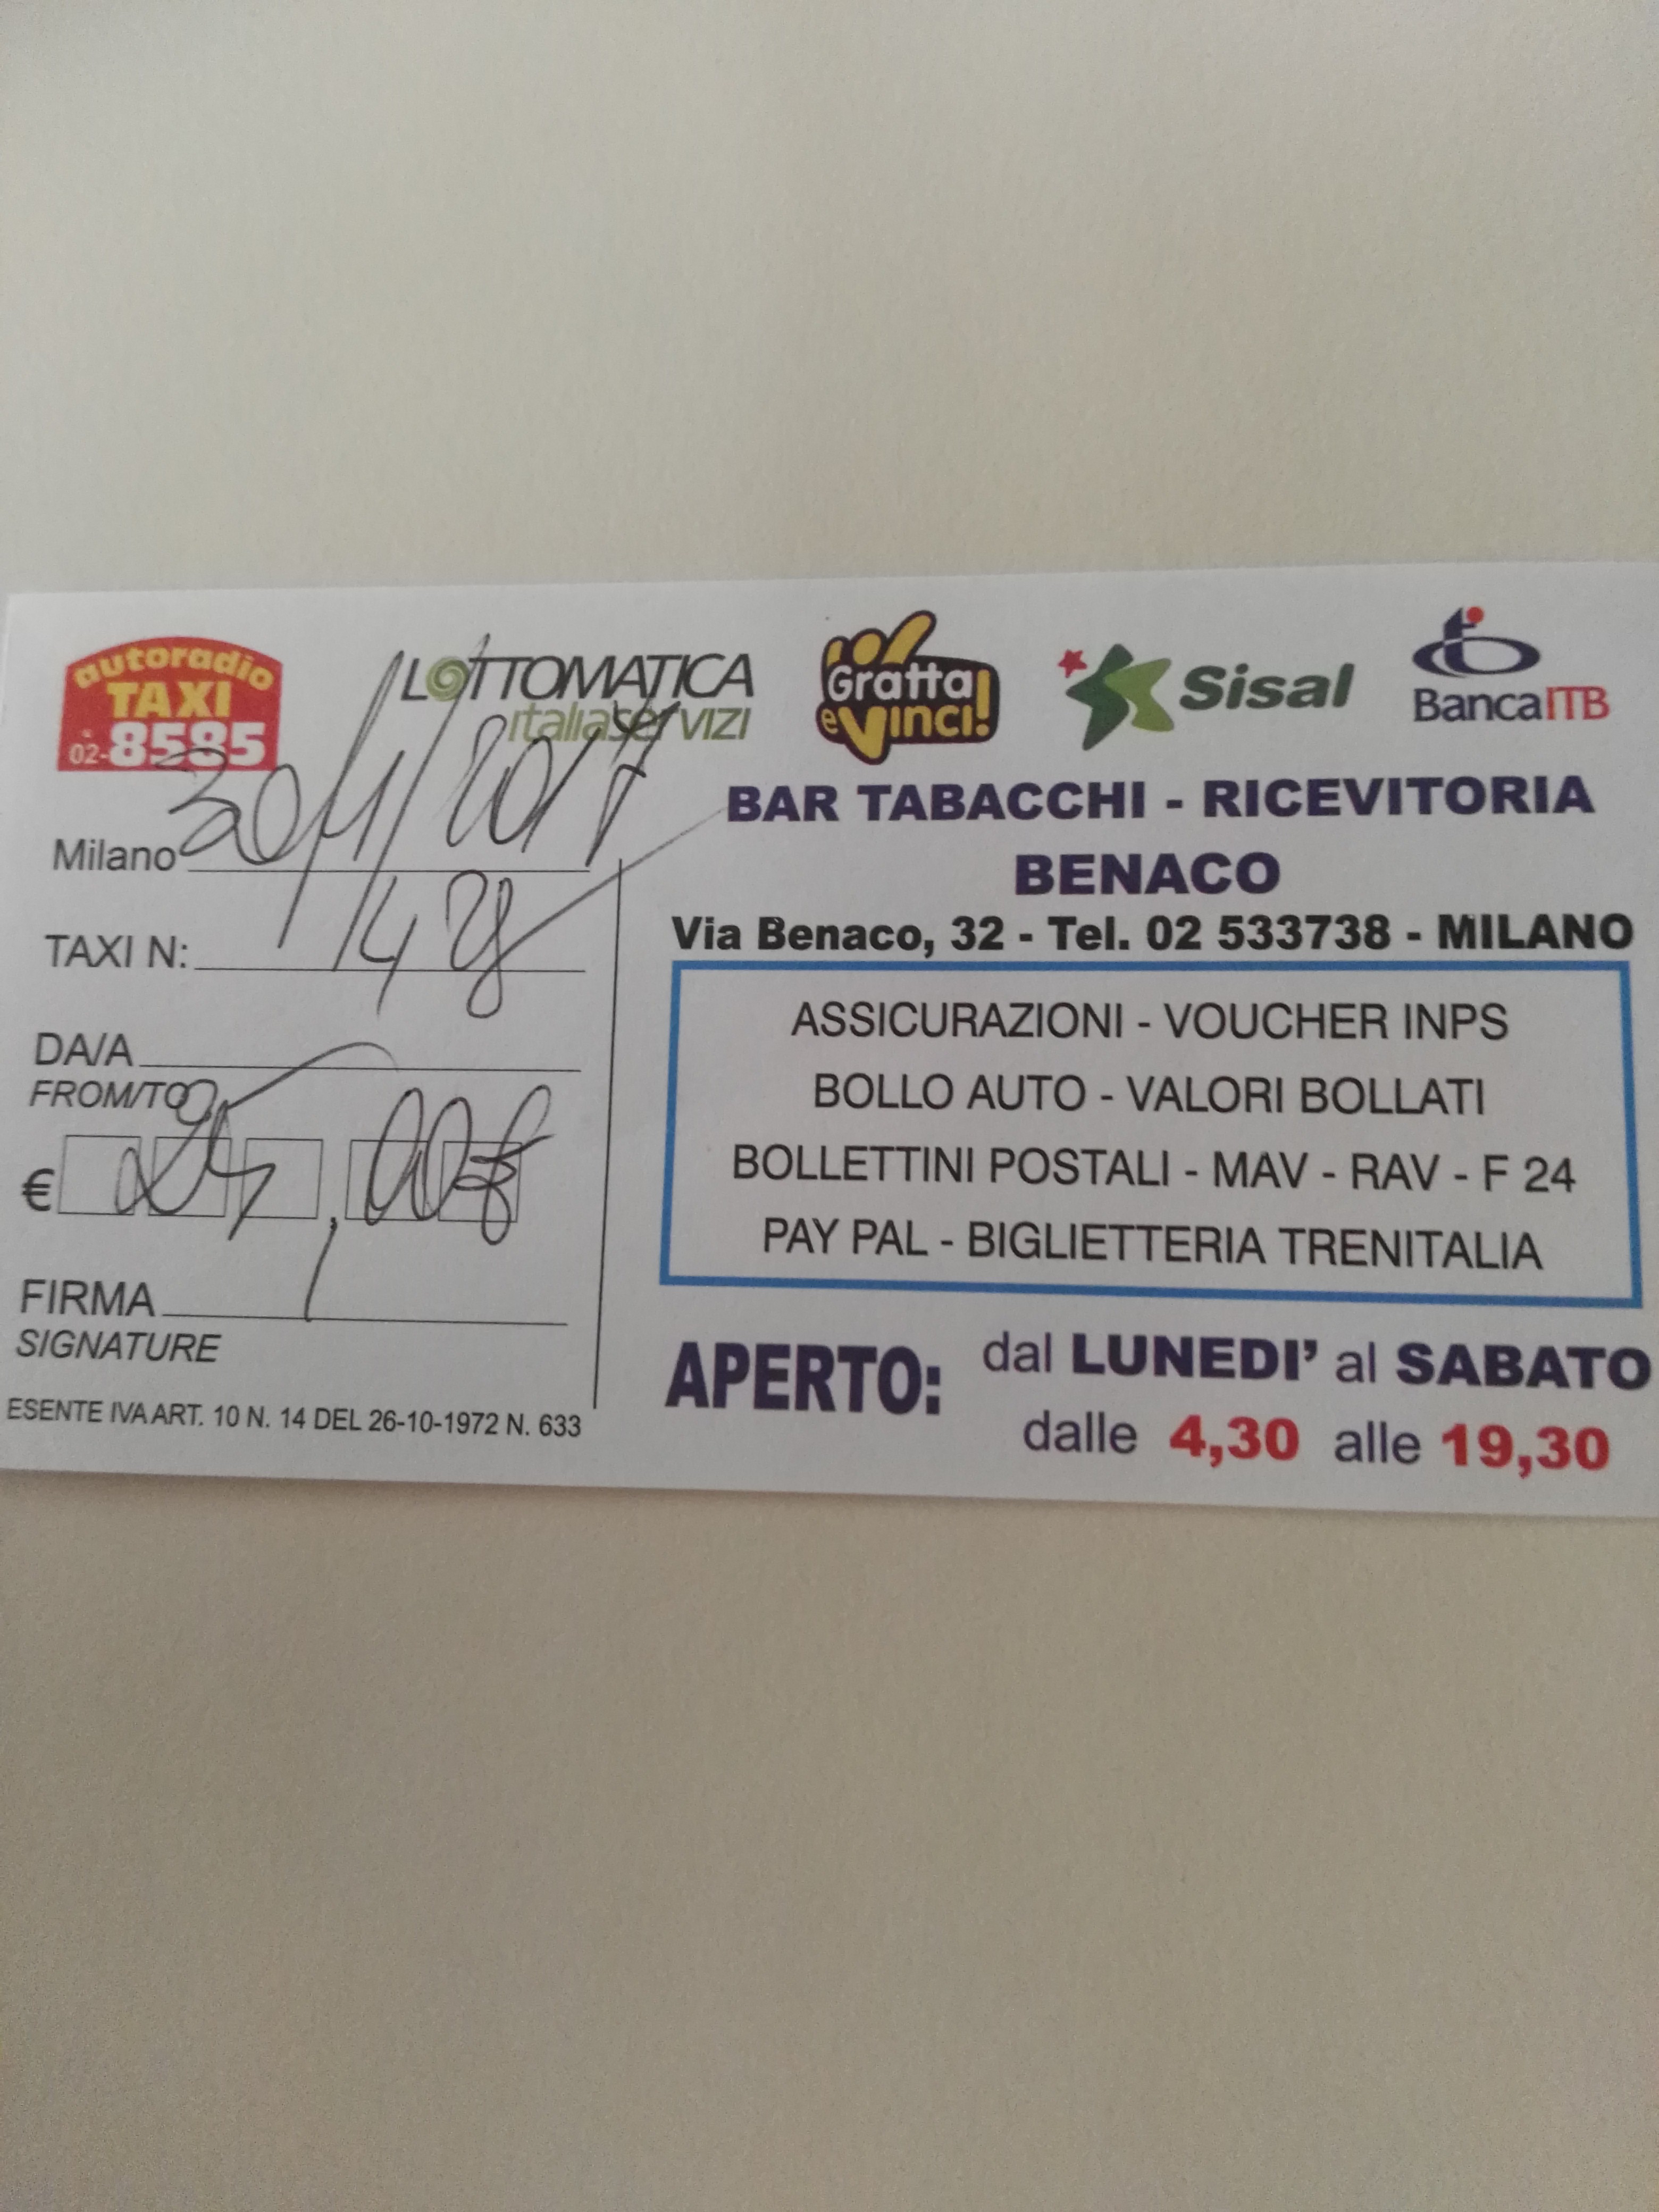 autoradio
TAXI
02-8585
LOTTOMATICA
italiaserVIZI
Gratta
e Vinci!
Sisal
BancaITB
Milano 30/1/2017
TAXI N: 148
DA/A
FROM/TO
€ 25,00
FIRMA
SIGNATURE
ESENTE IVA ART. 10 N. 14 DEL 26-10-1972 N. 633
BAR TABACCHI - RICEVITORIA
BENACO
Via Benaco, 32 - Tel. 02 533738 - MILANO
ASSICURAZIONI - VOUCHER INPS
BOLLO AUTO - VALORI BOLLATI
BOLLETTINI POSTALI - MAV - RAV - F 24
PAY PAL - BIGLIETTERIA TRENITALIA
APERTO: dal LUNEDI' al SABATO
dalle 4,30 alle 19,30